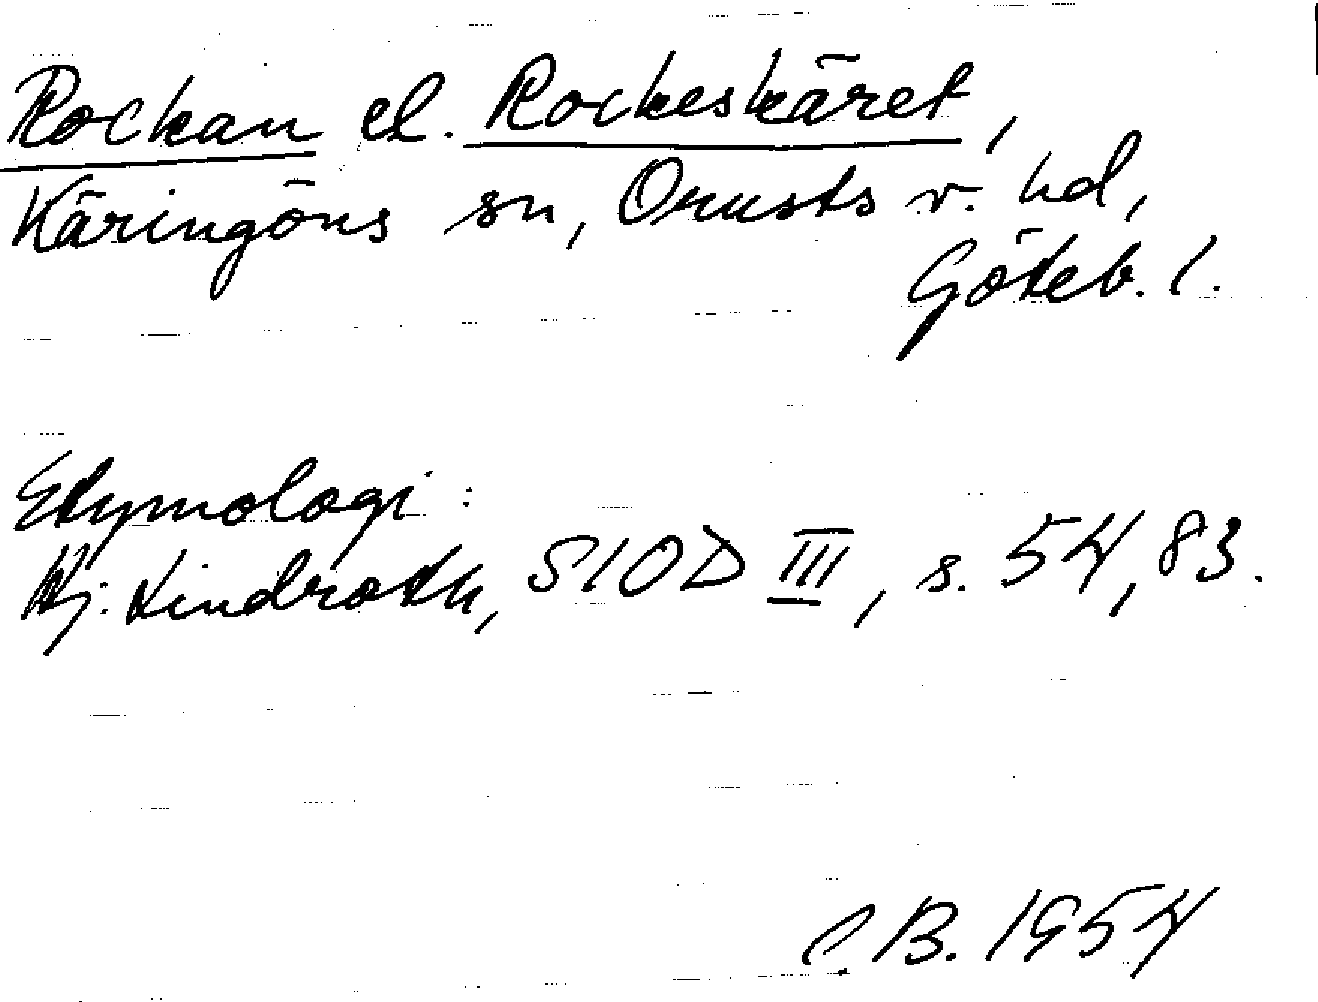 Rockan el. Rockeskäret,
Käringöns sn, Orusts v. hd,
Göteb. l.
Etymologi:
Hj. Lindroth, SIOD III, s. 54, 83.
C.B. 1954